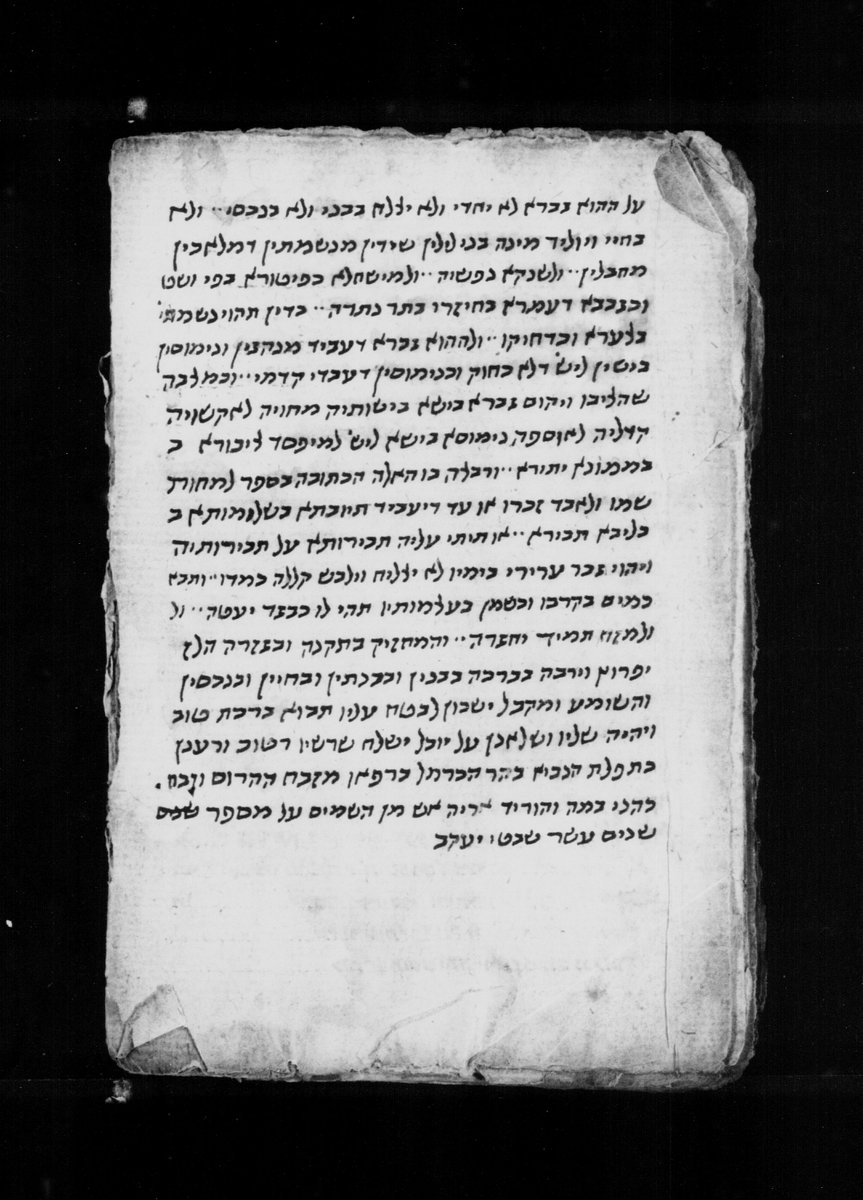 על ההוא גברא לא יחדי ולא יצלח בבני ולא בנכסי ׃ ולא
בחיי ויוליד מינה בני לילין שידין מנשמתין דמלאכין
מחבלין ׃ ולשנקא נפשיה ׃ ולמישחלא כפיטורא בפי ושט
וכגבבא דעמרא בחיזרי בתר נתרה ׃ כדין תהוי נשמתי
בצערא ובדחיקו ׃ ולההוא גברא דעביד מנהגין ונימוסין
בישין ליש׳ דלא כחוק ובנימוסין דעבדי קדמי ׃ ובמלכה
שהליבו ויקום גברא בישא בישותיה מחויה לאקשויה
קדליה לאוספה נימוסא בישא ליש׳ למיפסד ציבורא ב
בממונא יתירא ׃ ורבצה בו האלה הכתובה בספר למחות
שמו ולאבד זכרו או עד דיעביד תיובתא בשלימותא ב
בליבא תבירא ׃ או תיתי עליה תבירותא על תבירותיה
ויהוי גבר ערירי בימיו לא יצליח וילבש קללה כמדו ׃ ותבא
כמים בקרבו וכשמן בעצמותיו תהי לו כבגד יעטה ׃ ול
ולמזח תמיד יחגרה ׃ והמחזיק בתקנה ובגזרה הלז
יפרוץ וירבה בברכה בבנין ובבנתין ובחיין ובנכסין
והשומע ומקבל ישכון לבטח עליו תבוא ברכת טוב
ויהיה שליו ושלאנן על יובל ישלח שרשיו רטוב ורענן
כתפלת הנביא בהר הכרמל ברפאו מזבח ההרוס וזבח
כהני במה והוריד אריה אש מן השמים על מספר
שנים עשר שבטי יעקב